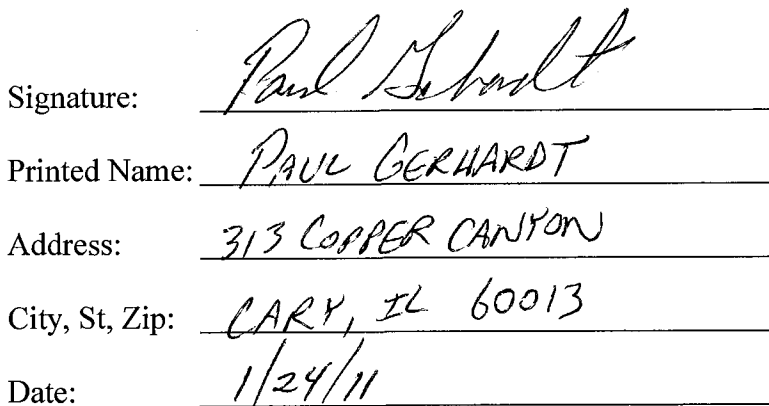 Signature: Paul Gerhardt
Printed Name: PAUL GERHARDT
Address: 313 COPPER CANYON
City, St, Zip: CARY, IL 60013
Date: 1/24/11